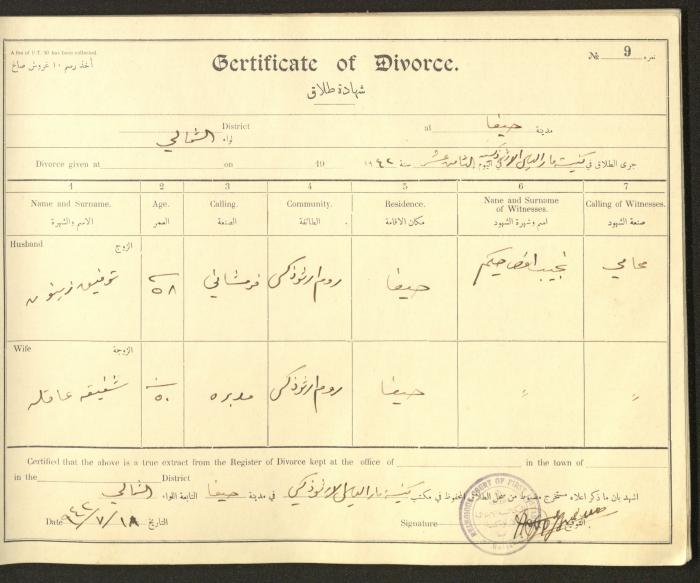 A fee of P.T. 10 has been collected.
أخذ رسم ١٠ غروش صاغ
Certificate of Divorce.
№ 9 نمره
شهادة طلاق
District at حيفا مدينة
الشمالي لواء
Divorce given at on 19 ١٩٤٢ سنة جرى الطلاق في كنيسة مار الياس الارثوذكسية اليوم الثامن عشر
1 2 3 4 5 6 7
Name and Surname. Age. Calling. Community. Residence. Name and Surname of Witnesses. Calling of Witnesses.
الاسم والشهرة العمر الصنعة الطائفة مكان الاقامة اسم وشهرة الشهود صنعة الشهود
Husband الزوج
توفيق زيتون ٥٨ روم ارثوذكس حيفا نجيب حكيم محامي
Wife الزوجة
شفيقه عاقله ٥٠ مدبره روم ارثوذكس حيفا
Certified that the above is a true extract from the Register of Divorce kept at the office of in the town of
in the District
اشهد بان ما ذكر اعلاه مستخرج من سجل الطلاق المحفوظ في مكتب كنيسة مار الياس الارثوذكسي في مدينة حيفا التابعة للواء الشمالي
Date ٩٤٢/٧/١٨ التاريخ Signature التوقيع